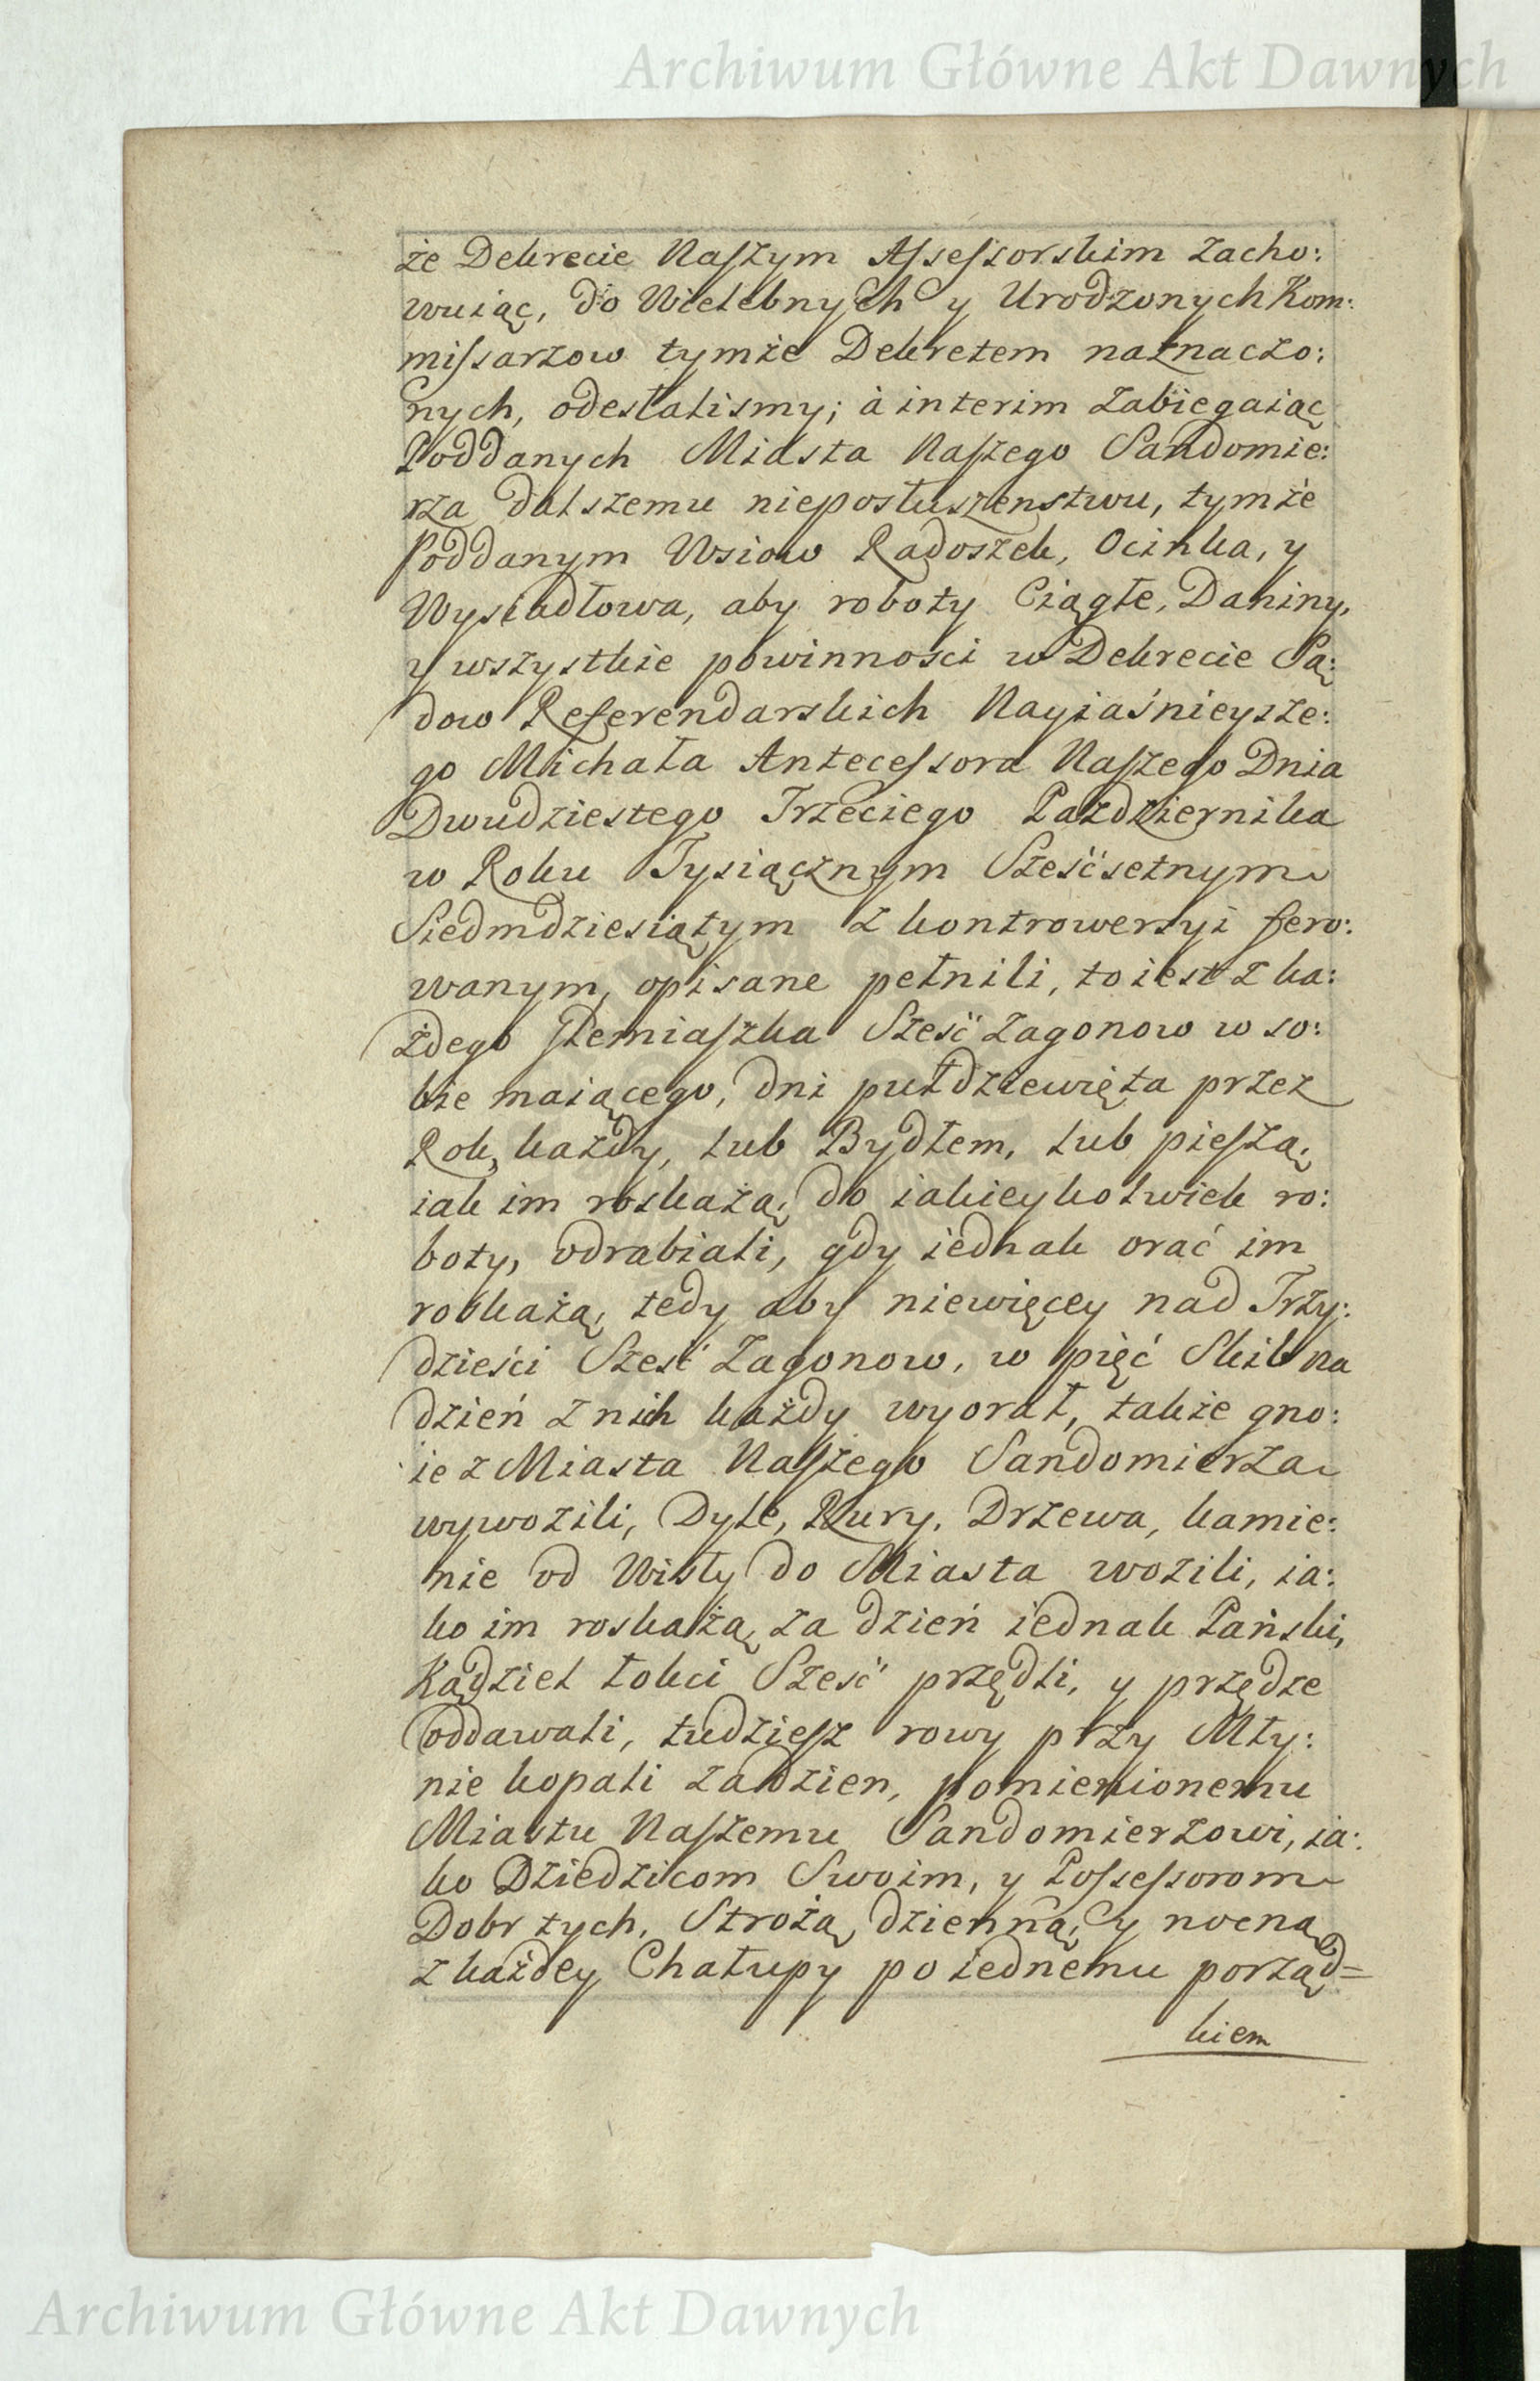 Archiwum Główne Akt Dawnych
że Dekrecie Naszym Assessorskim zacho:
wuiąc, do Wielebnych y Urodzonych Kom:
missarzow tymże Dekretem naznaczo:
nych, odesłalismy; à interim zabiegaiąc
Poddanych Miasta Naszego Sandomie:
rza dalszemu nieposłuszenstwu, tymże
Poddanym Wsiow Radoszek, Ocinka, y
Wysiadłowa, aby roboty Ciągłe, Daniny,
y wszystkie powinnosci w Dekrecie Są:
dow Referendarskich Nayiaśnieysze:
go Michała Antecessora Naszego Dnia
Dwudziestego Trzeciego Pazdziernika
w Roku Tysiącznym Sześćsetnym
Siedmdziesiątym z kontrowersyi fero:
wanym, opisane pełnili, to iest z ka:
żdego Ziemiaszka Sześć zagonow w so:
bie maiącego, dni pułdziewięta przez
Rok, każdy, lub Bydłem, lub pieszą,
iak im roskażą, do iakieykolwiek ro:
boty, odrabiali, gdy iednak orać im
roskażą, tedy aby niewięcey nad Trzy:
dzieści Sześć Zagonow, w pięć Skib na
dzień z nich każdy wyorał, także gno:
ie z Miasta Naszego Sandomierza
wywozili, Dyle, Rury, Drzewa, kamie:
nie od Wisły do Miasta wozili, ia:
ko im roskażą, za dzień iednak Pański,
Kądziel łokci Sześć przędli, y przędze
oddawali, tudziesz rowy przy Mły:
nie kopali za dzien, pomienionemu
Miastu Naszemu Sandomierzowi, ia:
ko Dziedzicom Swoim, y Possessorom
Dobr tych, Strożą, dzienną, y nocną
z każdey Chałupy po iednemu porząd=
kiem
Archiwum Główne Akt Dawnych